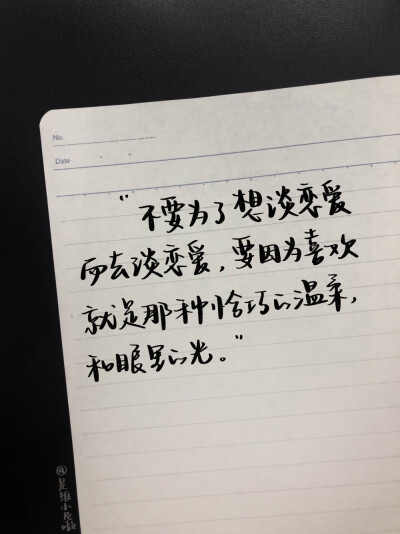 No.
Date
"不要为了想谈恋爱
而去谈恋爱,要因为喜欢
就是那种恰巧的温柔,
和眼里的光。"